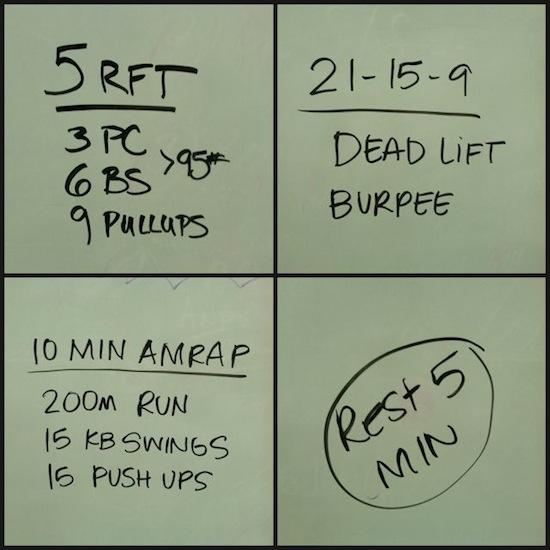 5 RFT
3 PC
6 BS >95#
9 PULLUPS
21-15-9
DEAD LIFT
BURPEE
10 MIN AMRAP
200M RUN
15 KB SWINGS
15 PUSH UPS
REST 5
MIN